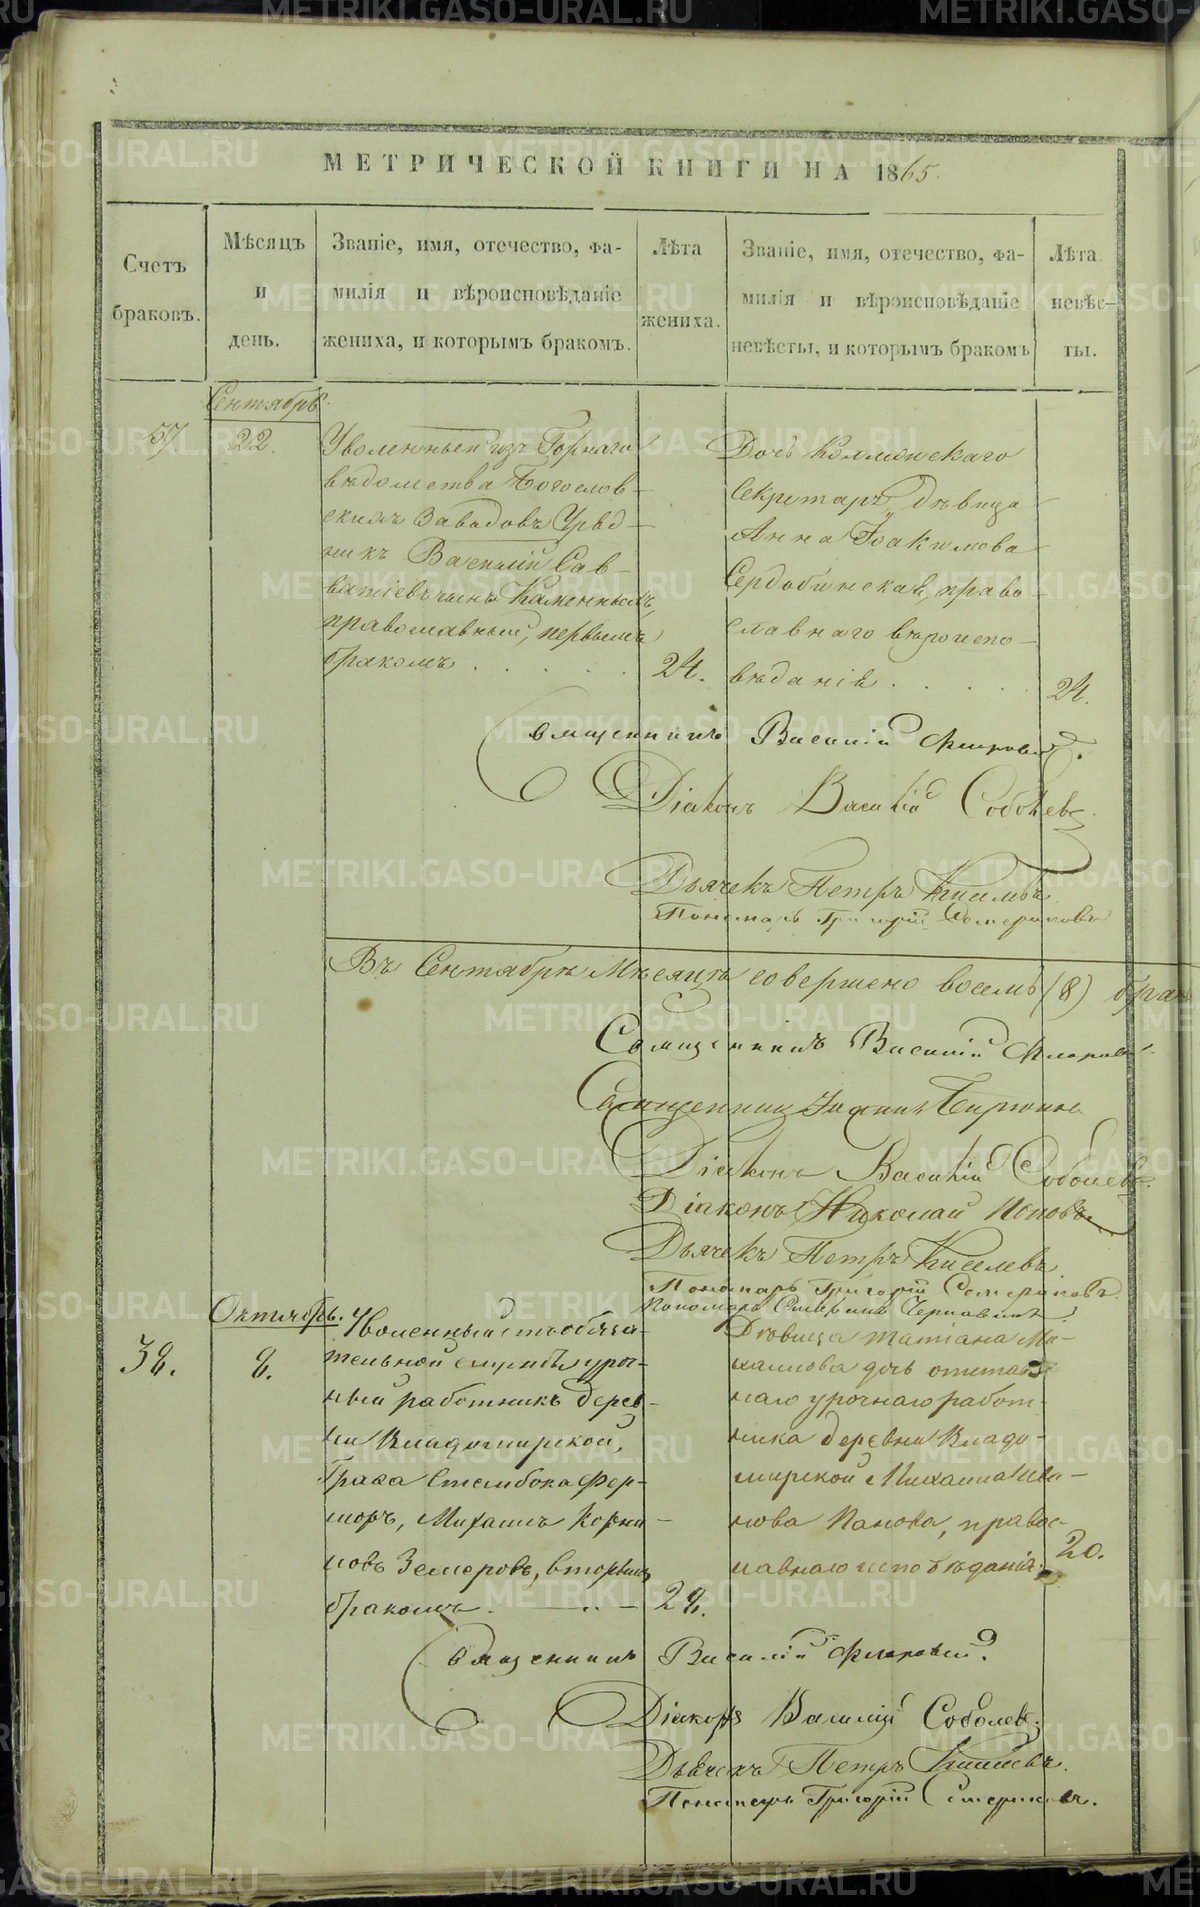 МЕТРИЧЕСКОЙ КНИГИ НА 1865.
Счетъ
браковъ.
Мѣсяцъ
и
день.
Званіе, имя, отечество, фа-
милія и вѣроисповѣданіе
жениха, и которымъ бракомъ.
Лѣта
жениха.
Званіе, имя, отечество, фа-
милія и вѣроисповѣданіе
невѣсты, и которымъ бракомъ
Лѣта
невѣс-
ты.
Сентябрь.
37
22.
Уволенный изъ Горнаго
вѣдомства Богослов-
скихъ Заводовъ Уряд-
никъ Василій Сав-
ватіевъ сынъ
православный, первымъ
бракомъ
24.
Дочь
Секретаря, дѣвица
Анна Іоакимова
Сердобинская, право
славнаго вѣроиспо-
вѣданія
24.
Священникъ Василій Флоровскій.
Діаконъ Василій Соболевъ
Дьячекъ Петръ Киселевъ
Пономарь Григорій
Въ Сентябрѣ Мѣсяцѣ совершено восемь (8) брак
Священникъ Василій
Священникъ Іоаннъ
Діаконъ Василій Соболевъ.
Діаконъ Николай Поповъ
Дьячекъ Петръ Киселевъ
Пономарь Григорій
Пономарь Чернавинъ
Октябрь.
38.
8.
Уволенный отъ обяза-
тельной службы уроч-
ный работникъ дерев-
ни Владимирской,
Графа Стембока Фер-
моръ, Михаилъ Корни-
ловъ Земеровъ, вторымъ
бракомъ
28.
Дѣвица Татіана Ми-
хаилова дочь отстав-
наго урочнаго работ-
ника деревни Влади-
мирской Михаила Ива-
нова Панова, правос-
лавнаго исповѣданія.
20.
Священникъ Василій Флоровскій.
Діаконъ Василій Соболевъ.
Дьячекъ Петръ Киселевъ.
Пономарь Григорій
METRIKI.GASO-URAL.RU